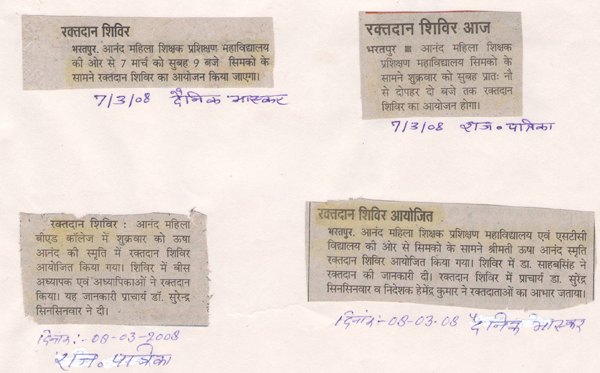 रक्तदान शिविर
भरतपुर. आनंद महिला शिक्षक प्रशिक्षण महाविद्यालय
की ओर से 7 मार्च को सुबह 9 बजे सिमको के
सामने रक्तदान शिविर का आयोजन किया जाएगा।
7/3/08 दैनिक भास्कर
रक्तदान शिविर आज
भरतपुर ■ आनंद महिला शिक्षक
प्रशिक्षण महाविद्यालय सिमको के
सामने शुक्रवार को सुबह प्रातः नौ
से दोपहर दो बजे तक रक्तदान
शिविर का आयोजन होगा।
7/3/08 राज. पत्रिका
रक्तदान शिविर : आनंद महिला
बीएड कॉलेज में शुक्रवार को ऊषा
आनंद की स्मृति में रक्तदान शिविर
आयोजित किया गया। शिविर में बीस
अध्यापक एवं अध्यापिकाओं ने रक्तदान
किया। यह जानकारी प्राचार्य डॉ. सुरेन्द्र
सिनसिनवार ने दी।
दिनांक:-08-03-2008
राज. पत्रिका
रक्तदान शिविर आयोजित
भरतपुर. आनंद महिला शिक्षक प्रशिक्षण महाविद्यालय एवं एसटीसी
विद्यालय की ओर से सिमको के सामने श्रीमती ऊषा आनंद स्मृति
रक्तदान शिविर आयोजित किया गया। शिविर में डा. साहबसिंह ने
रक्तदान की जानकारी दी। रक्तदान शिविर में प्राचार्य डा. सुरेंद्र
सिनसिनवार व निदेशक हेमेंद्र कुमार ने रक्तदाताओं का आभार जताया।
दिनांक:-08-03-08 दैनिक भास्कर